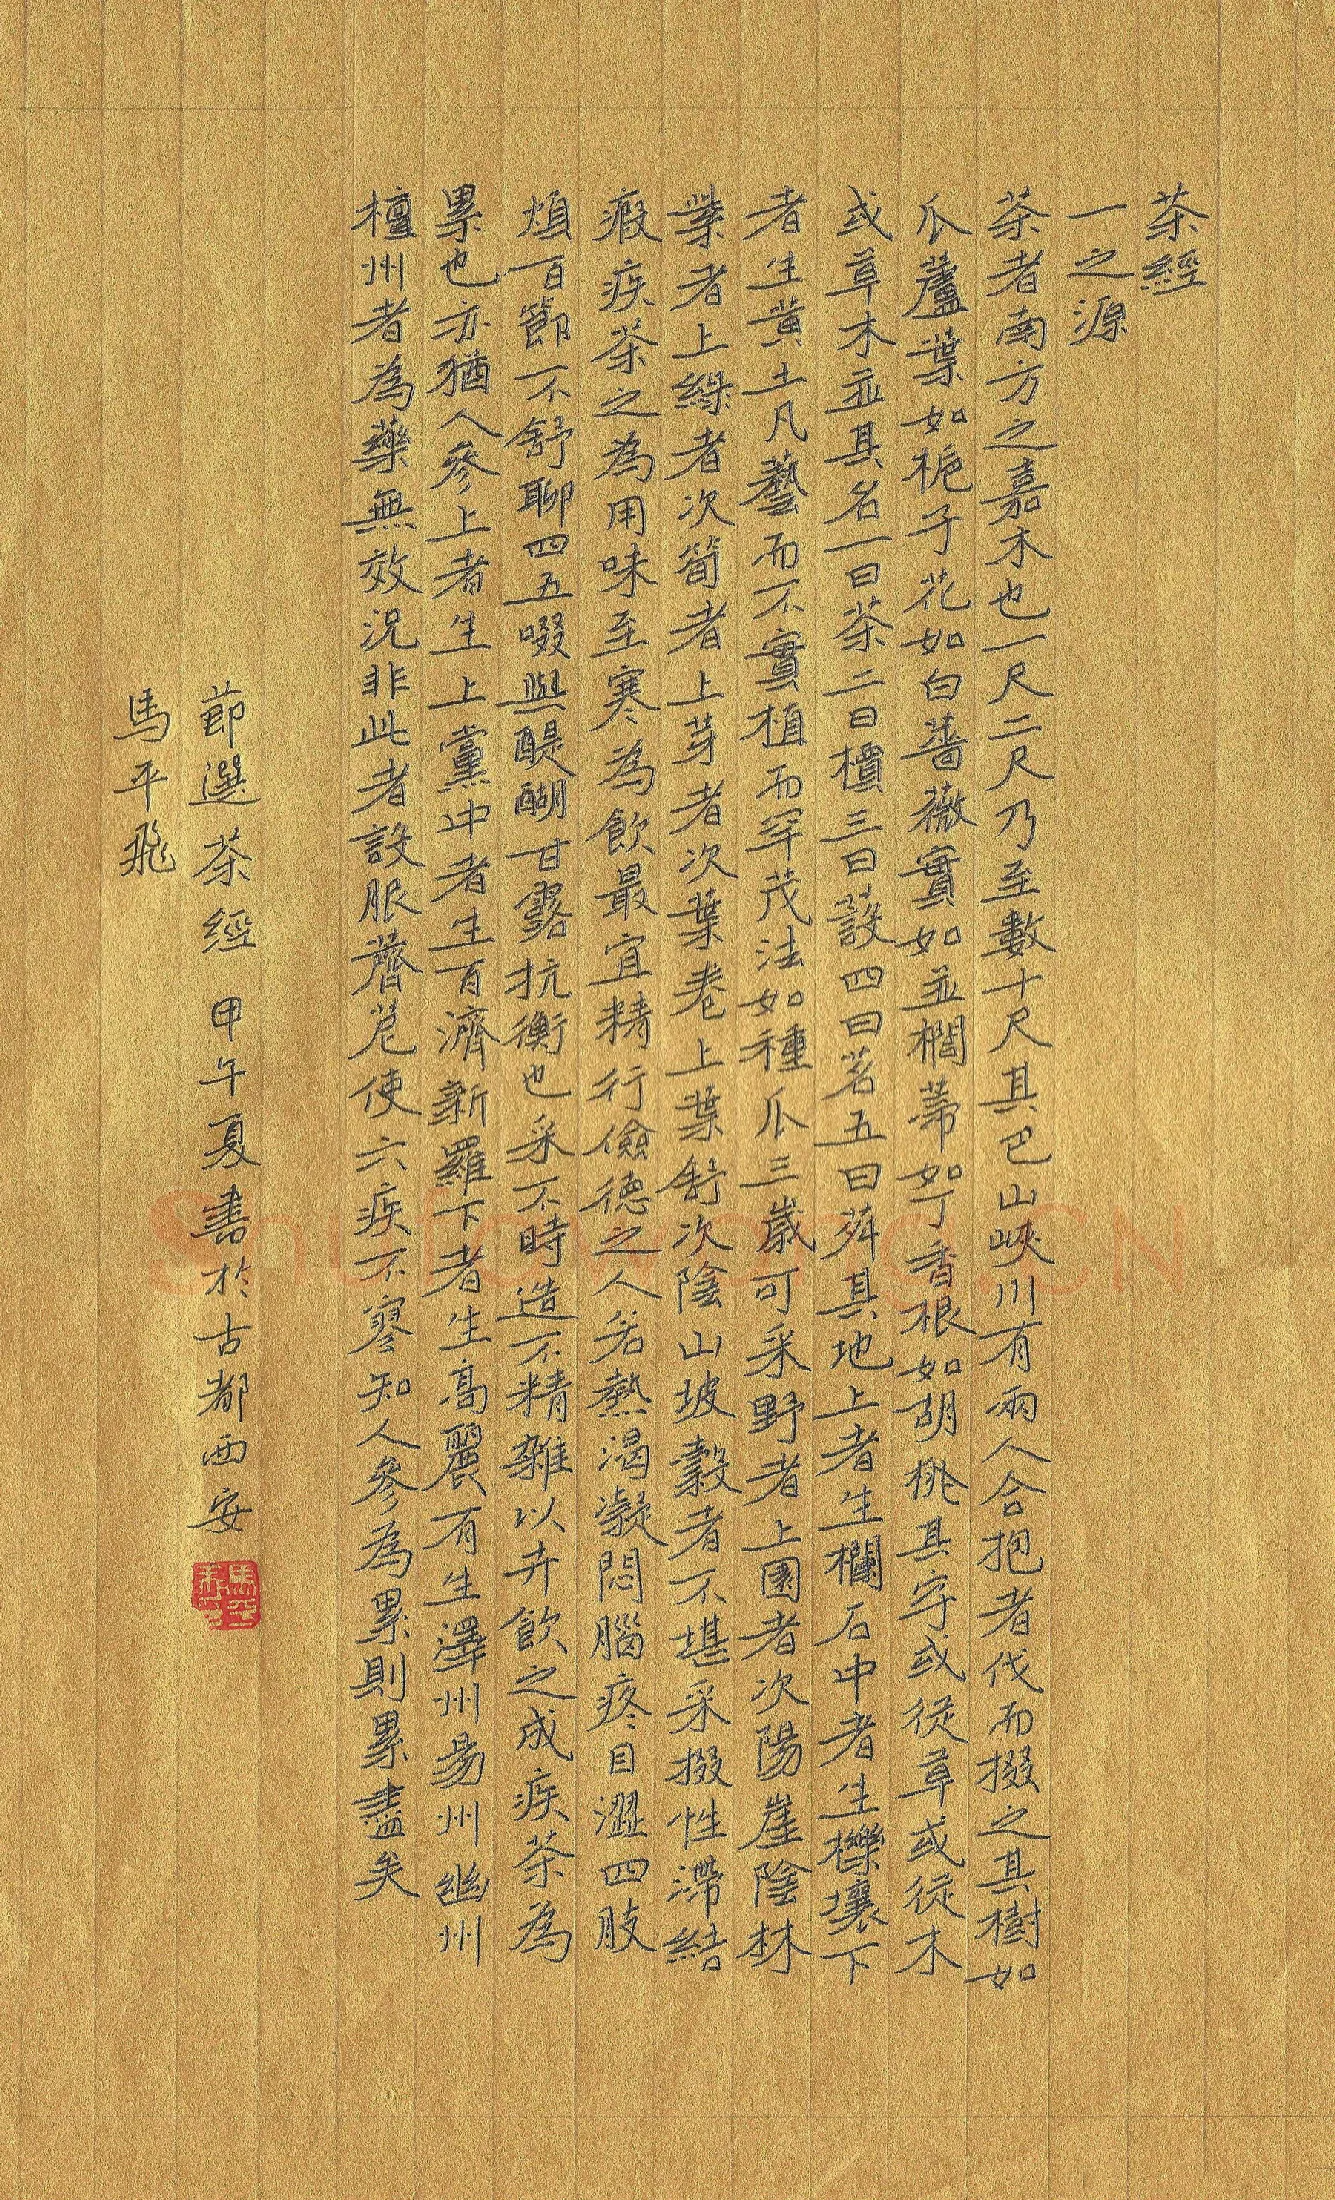 茶經
一之源
茶者南方之嘉木也一尺二尺乃至數十尺其巴山峽川有兩人合抱者伐而掇之其樹如
瓜蘆葉如梔子花如白薔薇實如並櫚蒂如丁香根如胡桃其字或從草或從木
或草木並其名一曰茶二曰檟三曰蔎四曰茗五曰荈其地上者生欄石中者生櫟壤下
者生黃土凡藝而不實植而罕茂法如種瓜三歲可采野者上園者次陽崖陰林
紫者上綠者次筍者上芽者次葉卷上葉舒次陰山坡穀者不堪采掇性滯結
瘕疾茶之為用味至寒為飲最宜精行儉德之人若熱渴凝悶腦疼目澀四肢
煩百節不舒聊四五啜與醍醐甘露抗衡也采不時造不精雜以卉飲之成疾茶為
累也亦猶人參上者生上黨中者生百濟新羅下者生高麗有生澤州易州幽州
檀州者為藥無效況非此者設服薺苨使六疾不寥知人參為累則累盡矣
節選茶經 甲午夏書於古都西安
馬平飛
ShufaWang.CN